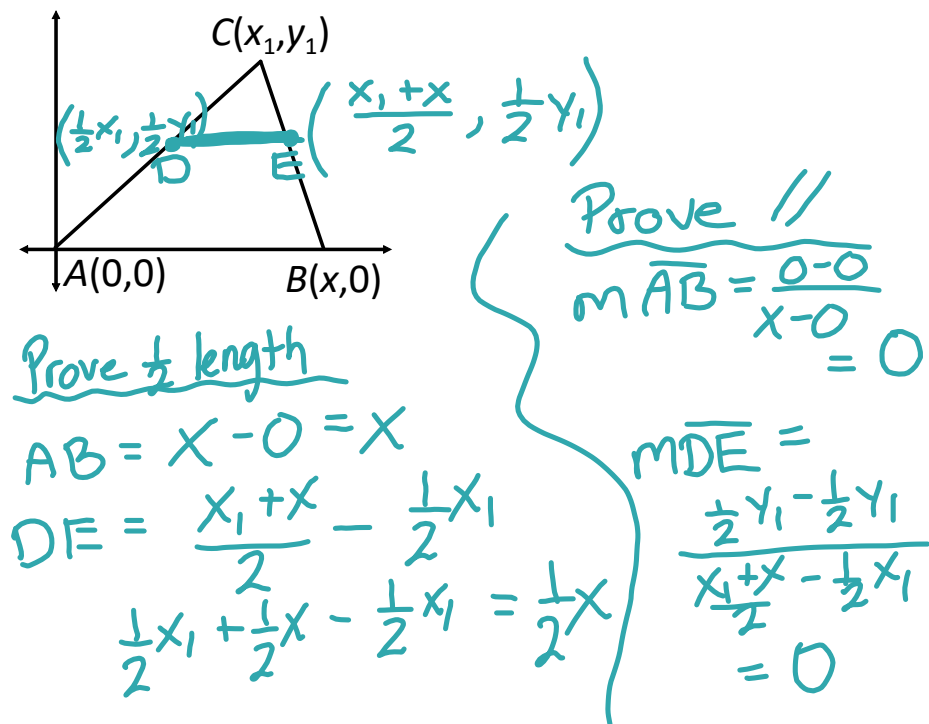 C(x₁,y₁)
(½x₁, ½y₁)
D
E
(x₁ + x / 2, ½y₁)
A(0,0)
B(x,0)
Prove ½ length
AB = x - 0 = x
DE = x₁ + x / 2 - ½x₁
½x₁ + ½x - ½x₁ = ½x
Prove //
mAB = 0-0 / x-0
= 0
mDE =
½y₁ - ½y₁ / x₁+x / 2 - ½x₁
= 0